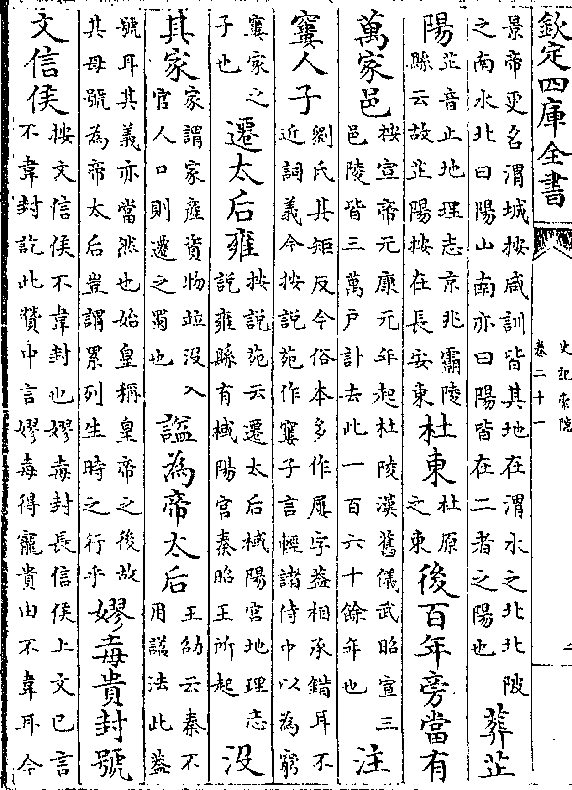 欽定四庫全書
史記索隱
卷二十一
景帝更名渭城按咸訓皆其地在渭水之北北阪
之南水北曰陽山南亦曰陽皆在二者之陽也
葬芷
陽
芷音止地理志京兆霸陵
縣云故芷陽按在長安東
杜東
杜原
之東
後百年旁當有
萬家邑
按宣帝元康元年起杜陵漢舊儀武昭宣三
邑陵皆三萬戶計去此一百六十餘年也
注
窶人子
劉氏其矩反今俗本多作屢字蓋相承錯耳不
近詞義今按說苑作窶子言輕諸侍中以為窮
窶家之
子也
遷太后雍
按說苑云遷太后棫陽宮地理志
說雍縣有棫陽宮秦昭王所起
沒
其家
家謂家產資物並沒入
官人口則遷之蜀也
諡為帝太后
王劭云秦不
用諡法此蓋
號耳其義亦當然也始皇稱皇帝之後故
其母號為帝太后豈謂累列生時之行乎
嫪毐貴封號
文信侯
按文信侯不韋封也嫪毐封長信侯上文已言
不韋封訖此贊中言嫪毐得寵貴由不韋耳今